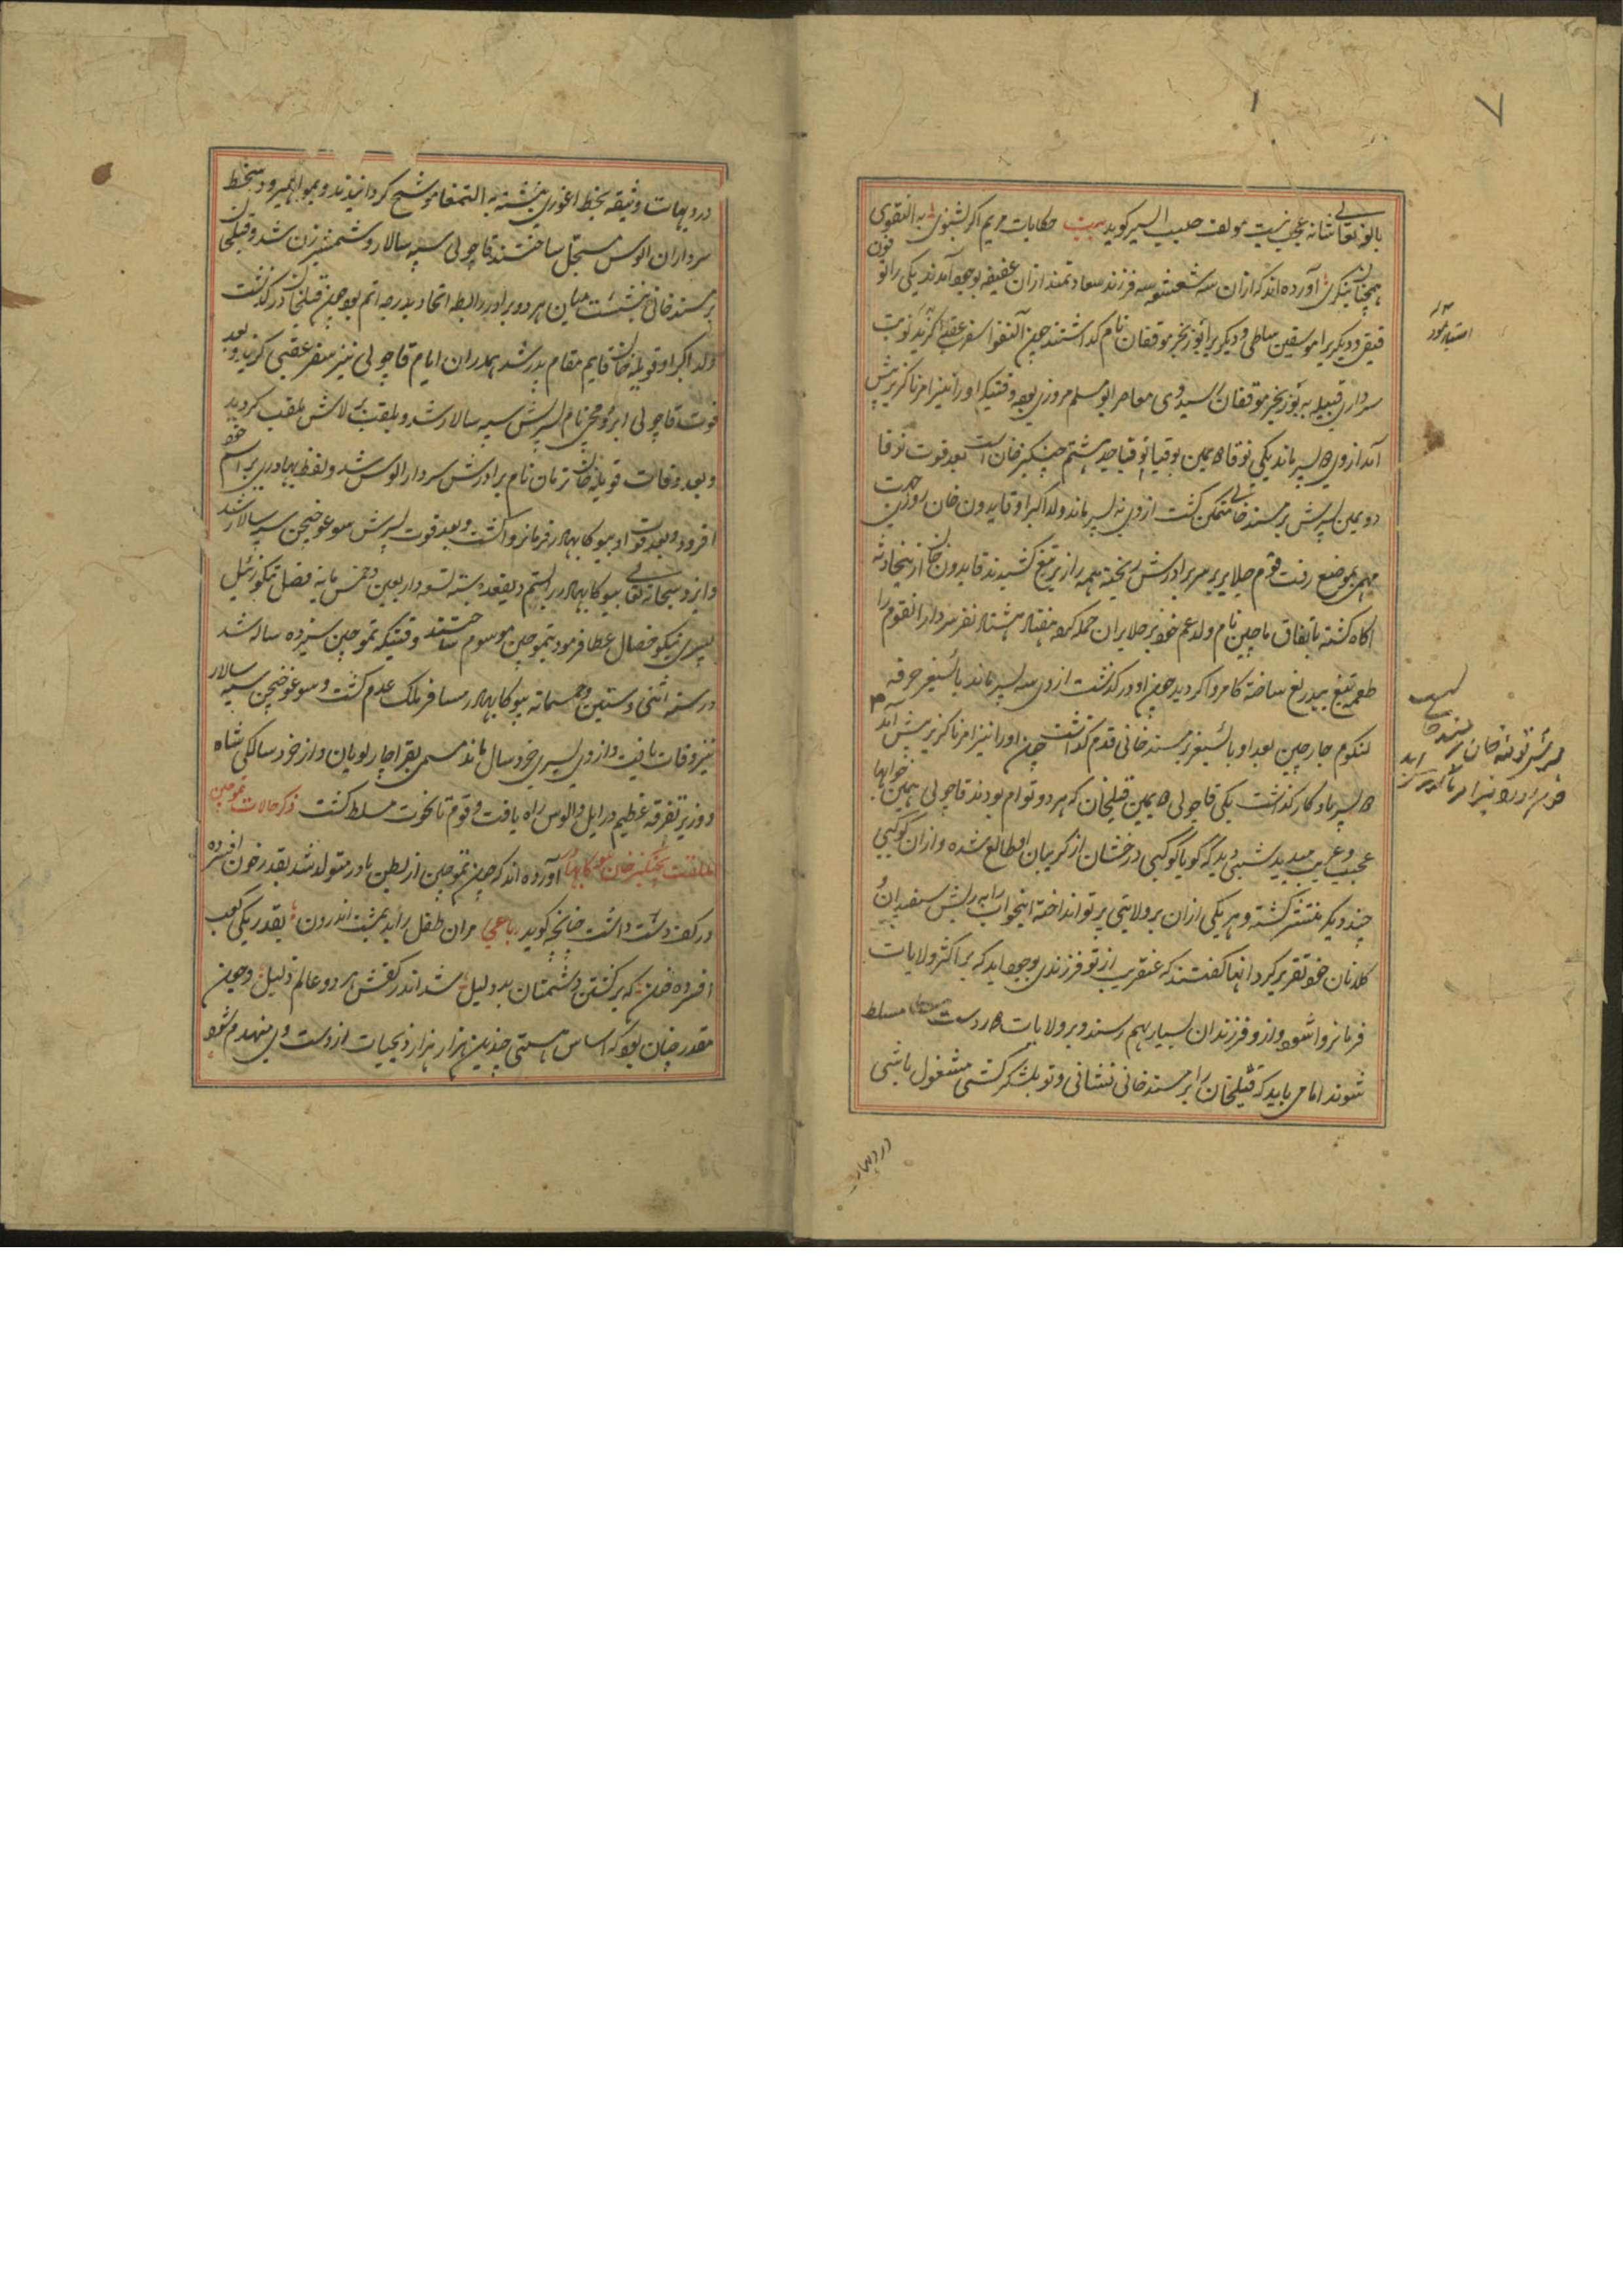 بالوا تعالی شانه عجب نیست مولف حبیب السیر کوید بیت حکایات مریم اکر بشنوی به النقوی
همچنان بنکری آورده اند که ازان سه شعشعه سه فرزند سعادتمند ازان عفیفه بوجود آمدند یکی را بوقون
قیقی و دیکریرا بوسقین سالجی و دیکریرا بوزنجر موقفان نام کذاشتند چون آلنقوا سفر عقبی اکزید نوبت
سرداری قبیله به بوزنجر موقفان رسید وی معاصر ابو مسلم مروزی بود وقتیکه او را نیز امر ناکزیر پیش
آمد از وی دو پسر ماند یکی توقا دویمین بوقا بوقا جد هشتم چنکیز خان است بعد فوت بوقا
دویمین پسرش بر مسند خانی متمکن کشت از وی نه پسر ماند ولد اکبر او قایدون خان روزی جهت
مهمی بموضع رفت قوم جلایر بر سر برادرش ریخته همه را زیر تیغ کشیدند قایدون خان ازینحادثه
آکاه کشته باتفاق ماچین نام ولد عم خود بر جلایران حمله کرده هفتاد هشتاد نفر سردار انقوم را
طعمه تیغ بیدریغ ساخته کامروا کردید چون او در کذشت از وی سه پسر ماند بایسنغر جرقه
لنکوم جارچین بعد او بایسنغر بر مسند خانی قدم کذاشت چون او را نیز امر ناکزیر پیش آمد
دو پسر یادکار کذاشت یکی قاچولی دویمین قبلخان که هر دو توام بودند قاچولی همین خوابها
عجیب و غریب میدید شبی دید که کویا کوکبی درخشان از کریبان او طالع شده و ازان کوکبی
چند دیکر منتشر کشته و هر یکی ازان بر ولایتی پرتو انداخته اینخواب را به ریش سفیدان و
کلانان خود تقریر کرد انها کفتند که عنقریب از تو فرزندی بوجود اید که بر اکثر ولایات
فرمانروا شود و از و فرزندان بسیار بهم رسند و بر ولایات دور دست مسلط
شوند اما می باید که قبلخان را بر مسند خانی نشانی و تو بلشکر کشی مشغول باشی
پسرش تومنه خان بر مسند خانی
چون او را نیز امر ناکزیر پیش آمد
در دیهات وثیقه بخط اغوری نوشته به التمغا موشح کردانیدند و بمواهیر و دستخط
سرداران الوس مسجل ساختند قاچولی سپه سالار و شمشیر زن شد و قبلخان
بر مسند خانی نشست میان هر دو برادر رابطه اتحاد بدرجه اتم بود چون قبلخان در کذشت
ولد اکبر او قوبله خان قایم مقام پدر شد همدران ایام قاچولی نیز سفر عقبی کزید و بعد
فوت قاچولی ایرومجی نام پسرش سپه سالار شد و بلقب برلاس ملقب کردید
و بعد وفات قوبله خان برتان نام برادرش سردار الوس شد و لفظ بهادری بر اسم خود
افزود و بعد فوت او بیسوکا بهادر فرمانروا کشت و بعد فوت پسرش سوغوجیجن سپه سالار شد
و ایزد سبحانه تعالی بیسوکا بهادر را بستم ذیقعده سنه تسع و اربعین و خمس مایه فضل تنکوز ئیل
پسری نیکو خصال عطا فرمود بتموجین موسوم ساختند وقتیکه تموجین سیزده ساله شد
در سنه اثنی و ستین و خمسمائه بیسوکا بهادر مسافر ملک عدم کشت و سوغوجیجن سپه سالار
نیز وفات یافت و از وی پسری خورد سال ماند مسمی بقراچار نویان و از خورد سالکی شاه
و وزیر تفرقه عظیم در ایل و الوس راه یافت و قوم تایجوت مسلط کشت ذکر حالات تموجین
الملقب بچنکیز خان بیسوکا بهادر آورده اند که چون تموجین از بطن مادر متولد شد بقدر خون افسرده
در کف دست داشت چنانچه کوید رباعی مران طفل را بد بمشت اندرون بقدر یکی کعب
افسرده خون که بر کشتن دشمنان بد دلیل شد اندر کفش هر دو عالم ذلیل و چون
مقدر چنان بود که اساس هستی چندین هزار هزار ذیحیات از دست وی منهدم شود
در دیهات